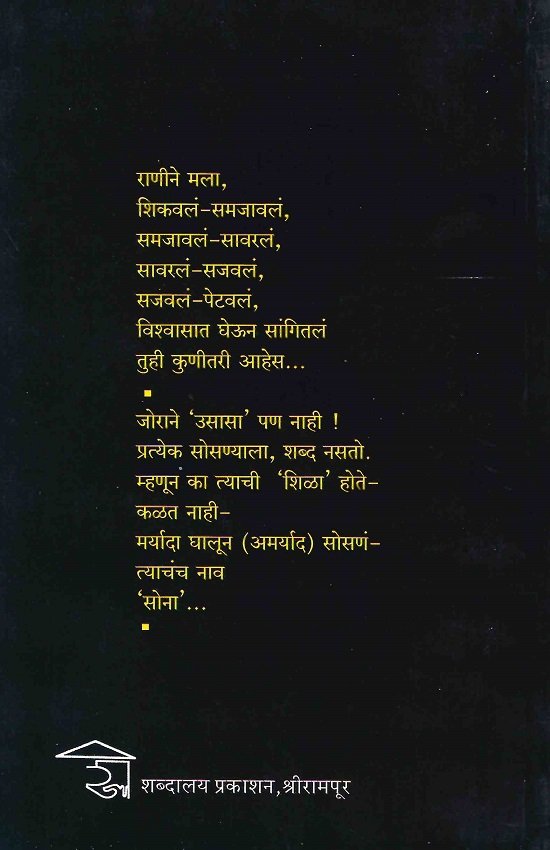 राणीने मला,
शिकवलं-समजावलं,
समजावलं-सावरलं,
सावरलं-सजवलं,
सजवलं-पेटवलं,
विश्वासात घेऊन सांगितलं
तुही कुणीतरी आहेस...
जोराने ‘उसासा’ पण नाही !
प्रत्येक सोसण्याला, शब्द नसतो.
म्हणून का त्याची ‘शिळा’ होते-
कळत नाही-
मर्यादा घालून (अमर्याद) सोसणं-
त्याचंच नाव
‘सोना’...
शब्दालय प्रकाशन,श्रीरामपूर